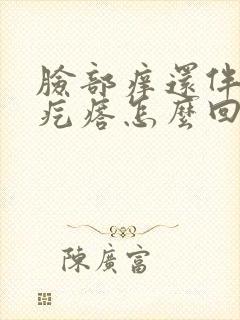 臉部痒還伴
疙瘩怎麼回
陳廣富